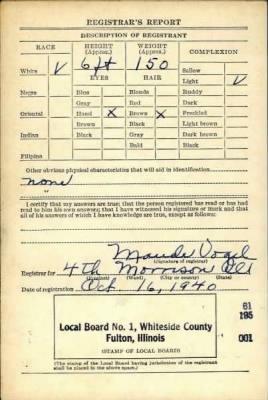 REGISTRAR'S REPORT
DESCRIPTION OF REGISTRANT
RACE HEIGHT (Approx.) WEIGHT (Approx.) COMPLEXION
White ✓ 6 ft 150 Sallow
EYES HAIR Light ✓
Negro Blue Blonde Ruddy
Gray Red Dark
Oriental Hazel X Brown X Freckled
Brown Black Light brown
Indian Black Gray Dark brown
Bald Black
Filipino
Other obvious physical characteristics that will aid in identification
none
I certify that my answers are true; that the person registered has read or has had
read to him his own answers; that I have witnessed his signature or mark and that
all of his answers of which I have knowledge are true, except as follows:
Maude Vogel
(Signature of registrar)
Registrar for 4th Morrison Ill
(Precinct) (Ward) (City or County) (State)
Date of registration Oct 16, 1940
61
195
001
Local Board No. 1, Whiteside County
Fulton, Illinois
(STAMP OF LOCAL BOARD)
(The stamp of the Local Board having jurisdiction of the registrant
shall be placed in the above space.)